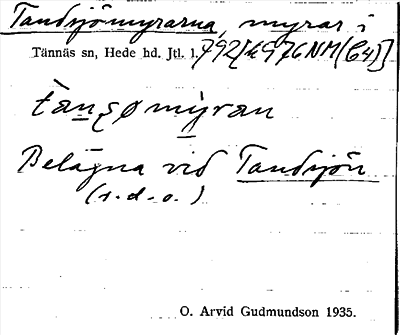 Tandsjömyrarna, myrar i
Tännäs sn, Hede hd. Jtl. 1.792[k976NM(C4)]
tan̲ʂømỳ̲ran
Belägna vid Tandsjön
(s.d.o.)
O. Arvid Gudmundson 1935.